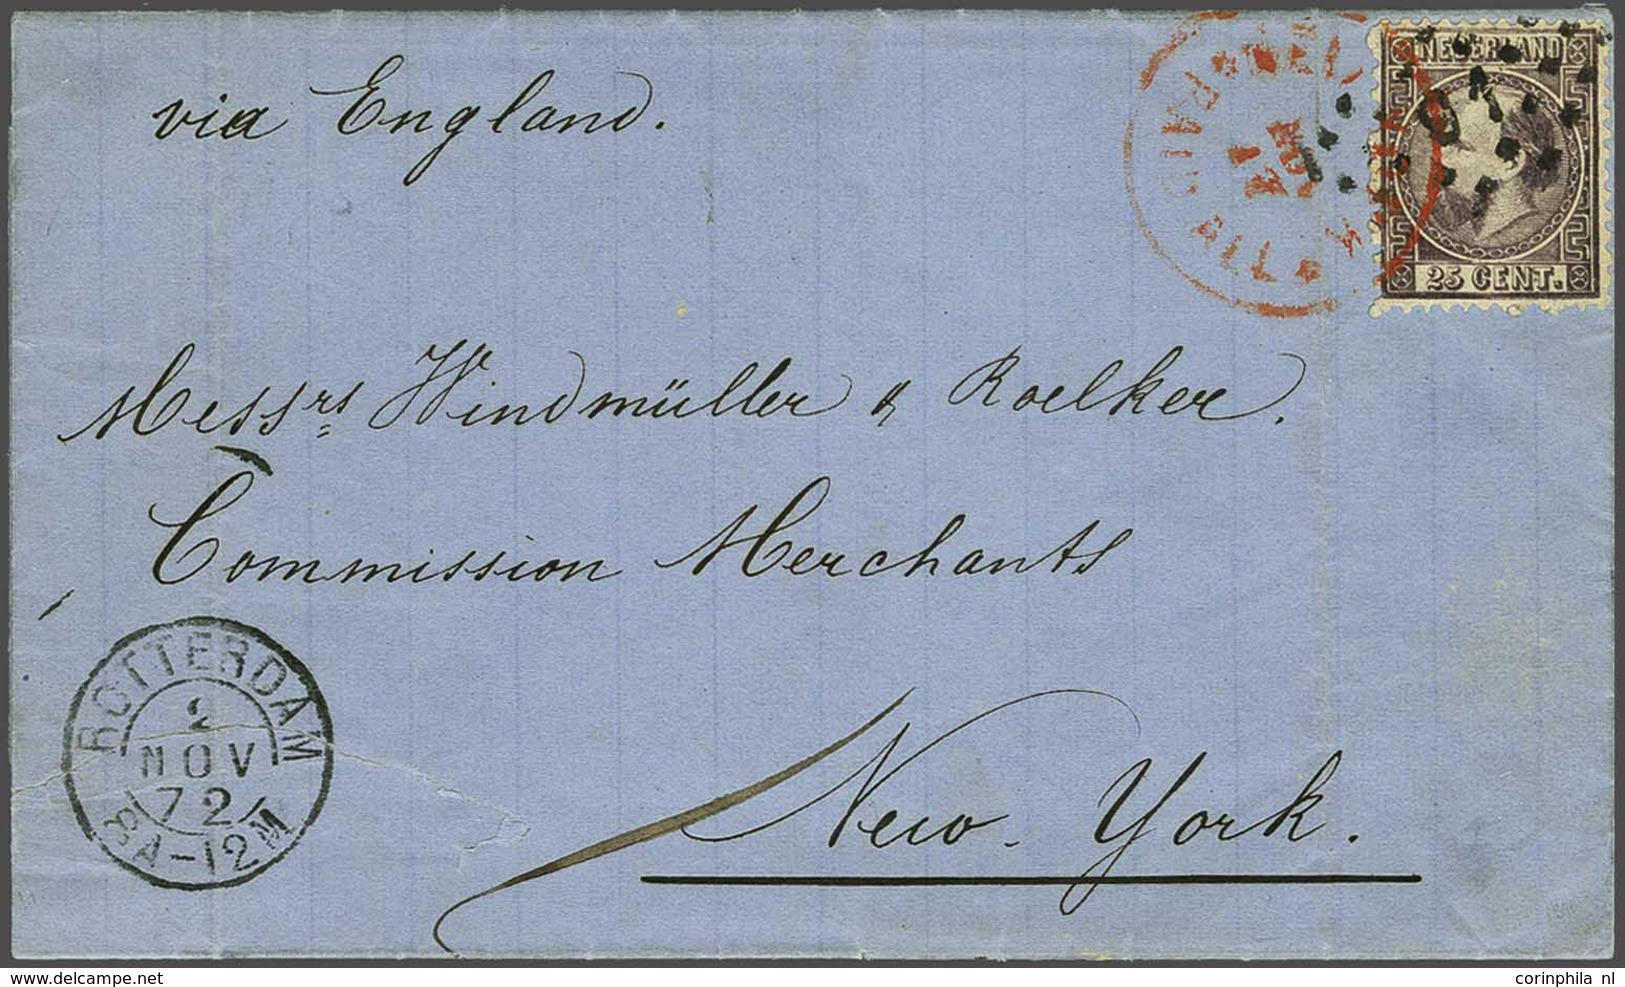 via England.
NEDERLAND
NEW YORK
PAID ALL
25 CENT.
Messrs Windmüller & Roelker.
Commission Merchants
New-York.
ROTTERDAM
2
NOV
72
8A-12M
corinphila nl